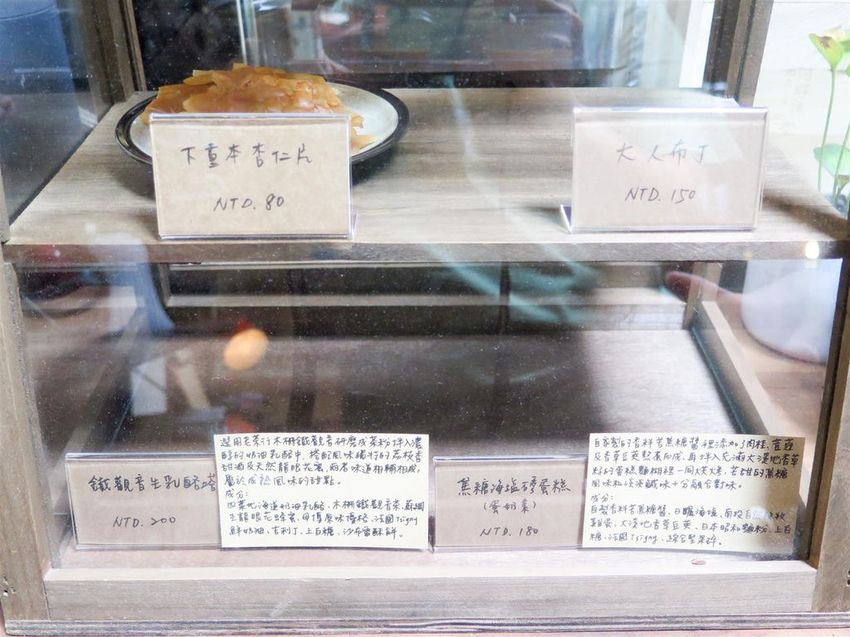 下重本杏仁片
NTD. 80
大人布丁
NTD. 150
鐵觀音生乳酪塔
NTD. 200
選用老茶行木柵鐵觀音研磨成茶粉拌入濃
醇的奶油乳酪中,搭配風味獨特的荔枝香
甜酒及天然龍眼花蜜,兩者味道相輔相成,
屬於成於風味的甜點。
成分:
四葉北海道奶油乳酪、木柵鐵觀音茶、
生龍眼花蜂蜜、原味優格、法國Isigny
鮮奶油、吉利丁、上白糖、沙布蕾酥餅。
焦糖海塩磅蛋糕
(蛋奶素)
NTD. 180
自家製的香料苦焦糖醬裡添加了肉桂、荳蔻
及香草豆莢熬煮而成,再拌入充滿大溪地香草
料的蛋糕麵糊裡一同烘烤,苦甜的焦糖
風味和淡淡鹹味十分融合對味。
成分:
自製香料苦焦糖醬、日曬海塩、南投
雞蛋、大溪地香草豆莢、日本昭和麵粉、上白
糖、法國Isigny、綜合堅果碎。